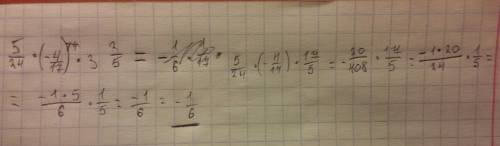 5/24 · (-4/17) · 3 2/5 = 5/24 · (-4/17) · 17/5 = -20/408 · 17/5 = -1·20/24 · 1/5 =
= -1·5/6 · 1/5 = -1/6 = -1/6